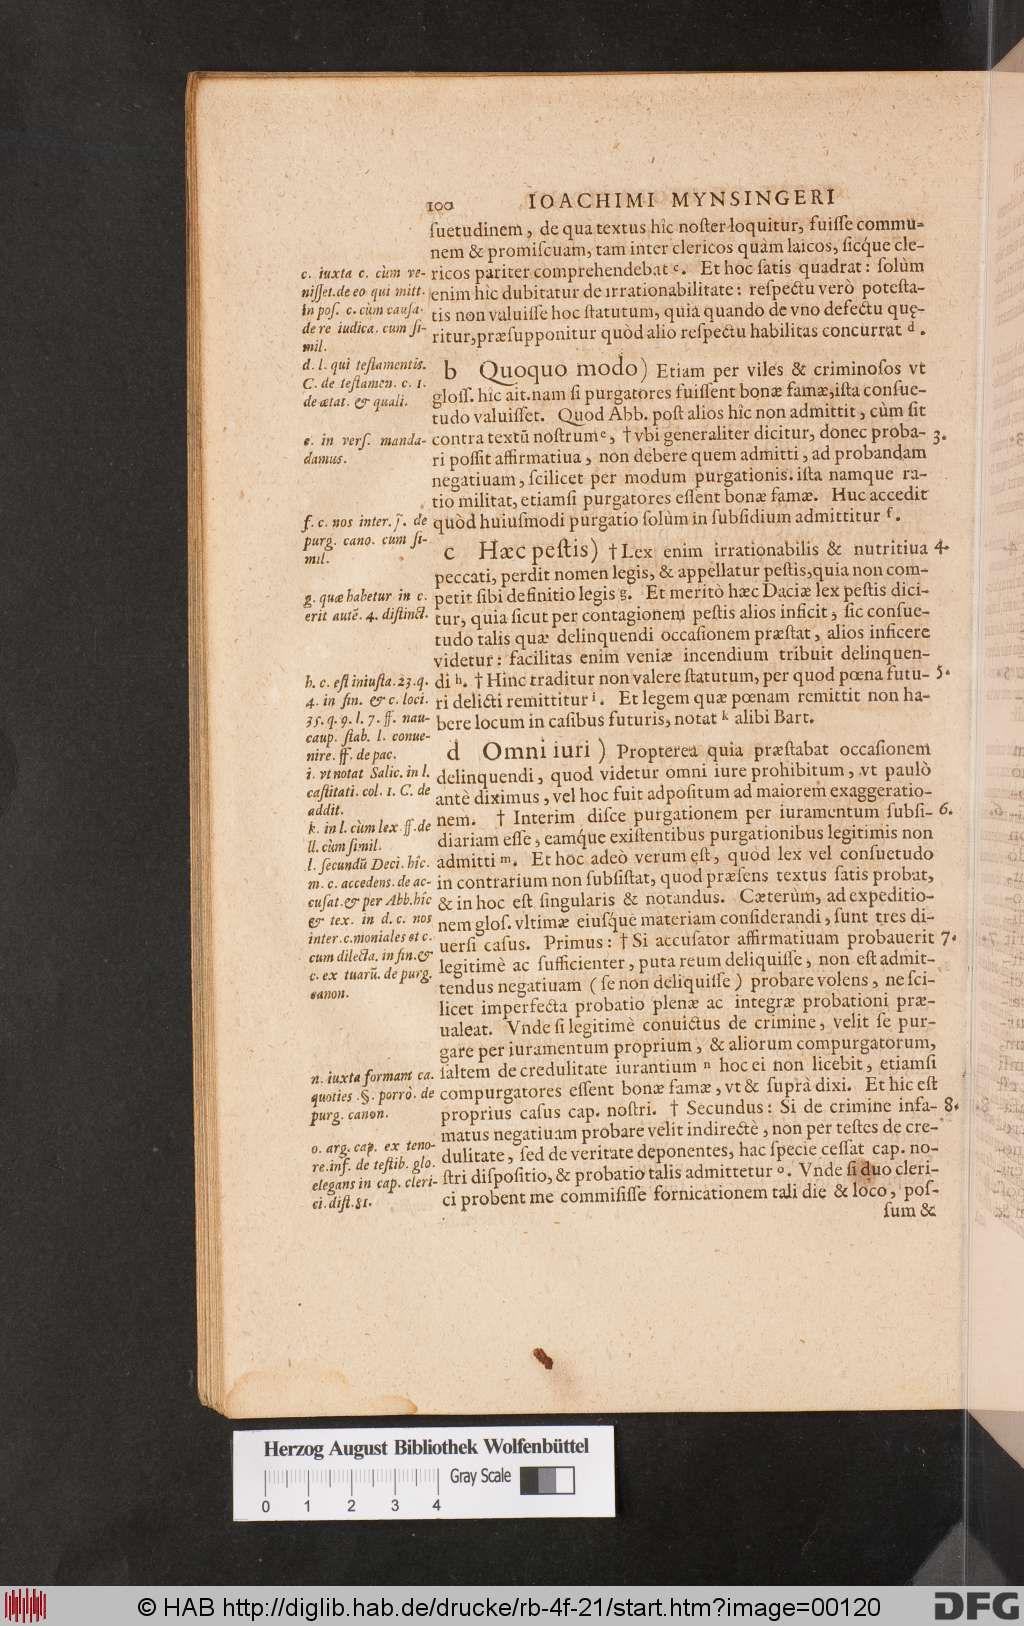 100 IOACHIMI MYNSINGERI
ſuetudinem, de qua textus hîc noſter loquitur, fuiſſe commu-
nem & promiſcuam, tam inter clericos quàm laicos, ſicq́ue cle-
ricos pariter comprehendebat c. Et hoc ſatis quadrat: ſolùm
enim hîc dubitatur de irrationabilitate: reſpectu verò poteſta-
tis non valuiſſe hoc ſtatutum, quia quando de vno defectu quę-
ritur, præſupponitur quòd alio reſpectu habilitas concurrat d.
b Quoquo modo) Etiam per viles & criminoſos vt
gloſſ. hîc ait. nam ſi purgatores fuiſſent bonæ famæ, iſta conſue-
tudo valuiſſet. Quod Abb. poſt alios hîc non admittit, cùm ſit
contra textū noſtrum e, † vbi generaliter dicitur, donec proba- 3.
ri poſſit affirmatiua, non debere quem admitti, ad probandam
negatiuam, ſcilicet per modum purgationis. iſta namque ra-
tio militat, etiamſi purgatores eſſent bonæ famæ. Huc accedit
quòd huiuſmodi purgatio ſolùm in ſubſidium admittitur f.
c Hæc peſtis) † Lex enim irrationabilis & nutritiua 4.
peccati, perdit nomen legis, & appellatur peſtis, quia non com-
petit ſibi definitio legis g. Et meritò hæc Daciæ lex peſtis dici-
tur, quia ſicut per contagionem peſtis alios inficit, ſic conſue-
tudo talis quæ delinquendi occaſionem præſtat, alios inficere
videtur: facilitas enim veniæ incendium tribuit delinquen-
di h. † Hinc traditur non valere ſtatutum, per quod pœna futu- 5.
ri delicti remittitur i. Et legem quæ pœnam remittit non ha-
bere locum in caſibus futuris, notat k alibi Bart.
d Omni iuri) Propterea quia præſtabat occaſionem
delinquendi, quod videtur omni iure prohibitum, vt paulò
antè diximus, vel hoc fuit adpoſitum ad maiorem exaggeratio-
nem. † Interim diſce purgationem per iuramentum ſubſi- 6.
diariam eſſe, eamq́ue exiſtentibus purgationibus legitimis non
admitti m. Et hoc adeò verum eſt, quòd lex vel conſuetudo
in contrarium non ſubſiſtat, quod præſens textus ſatis probat,
& in hoc eſt ſingularis & notandus. Cæterùm, ad expeditio-
nem gloſ. vltimæ eiuſq́ue materiam conſiderandi, ſunt tres di-
uerſi caſus. Primus: † Si accuſator affirmatiuam probauerit 7.
legitimè ac ſufficienter, puta reum deliquiſſe, non eſt admit-
tendus negatiuam (ſe non deliquiſſe) probare volens, ne ſci-
licet imperfecta probatio plenæ ac integræ probationi præ-
ualeat. Vnde ſi legitimè conuictus de crimine, velit ſe pur-
gare per iuramentum proprium, & aliorum compurgatorum,
ſaltem de credulitate iurantium n hoc ei non licebit, etiamſi
compurgatores eſſent bonæ famæ, vt & ſuprà dixi. Et hic eſt
proprius caſus cap. noſtri. † Secundus: Si de crimine infa- 8.
matus negatiuam probare velit indirectè, non per teſtes de cre-
dulitate, ſed de veritate deponentes, hac ſpecie ceſſat cap. no-
ſtri diſpoſitio, & probatio talis admittetur o. Vnde ſi duo cleri-
ci probent me commiſiſſe fornicationem tali die & loco, poſ-
ſum &
c. iuxta c. cùm ve-
niſſet. de eo qui mitt.
in poſ. c. cùm cauſa.
de re iudica. cum ſi-
mil.
d. l. qui teſtamentis.
C. de teſtamen. c. 1.
de ætat. & quali.
e. in verſ. manda-
damus.
f. c. nos inter. j. de
purg. cano. cum ſi-
mil.
g. quæ habetur in c.
erit autē. 4. diſtinct.
h. c. eſt iniuſta. 23. q.
4. in fin. & c. loci.
35. q. 9. l. 7. ff. nau-
caup. ſtab. l. conue-
nire. ff. de pac.
i. vt notat Salic. in l.
caſtitati. col. 1. C. de
addit.
k. in l. cùm lex. ff. de
ll. cùm ſimil.
l. ſecundū Deci. hîc.
m. c. accedens. de ac-
cuſat. & per Abb. hîc
& tex. in d. c. nos
inter. c. moniales et c.
cum dilecta. in fin. &
c. ex tuarū. de purg.
canon.
n. iuxta formam ca.
quoties. §. porrò. de
purg. canon.
o. arg. cap. ex teno-
re. inf. de teſtib. glo.
elegans in cap. cleri-
ci. diſt. 81.
Herzog August Bibliothek Wolfenbüttel
Gray Scale
0 1 2 3 4
© HAB http://diglib.hab.de/drucke/rb-4f-21/start.htm?image=00120
DFG